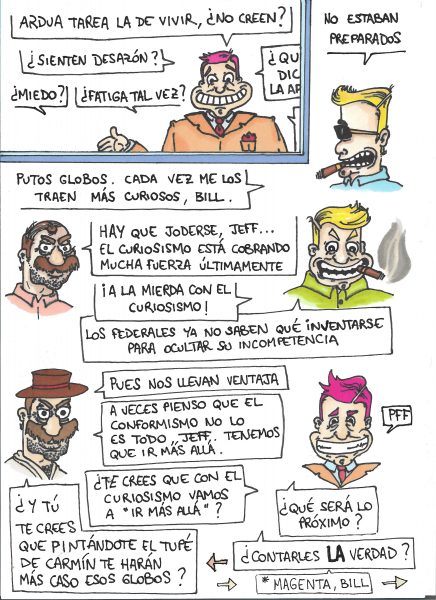 ARDUA TAREA LA DE VIVIR, ¿NO CREEN?
NO ESTABAN
PREPARADOS
¿SIENTEN DESAZÓN?
¿QU
DIC
LA AP
¿MIEDO?
¿FATIGA TAL VEZ?
PUTOS GLOBOS. CADA VEZ ME LOS
TRAEN MÁS CURIOSOS, BILL.
HAY QUE JODERSE, JEFF...
EL CURIOSISMO ESTÁ COBRANDO
MUCHA FUERZA ÚLTIMAMENTE
¡A LA MIERDA CON EL
CURIOSISMO!
LOS FEDERALES YA NO SABEN QUÉ INVENTARSE
PARA OCULTAR SU INCOMPETENCIA
PUES NOS LLEVAN VENTAJA
A VECES PIENSO QUE EL
CONFORMISMO NO LO
ES TODO, JEFF. TENEMOS
QUE IR MÁS ALLÁ.
PFF
¿TE CREES QUE CON EL
CURIOSISMO VAMOS
A "IR MÁS ALLÁ"?
¿QUÉ SERÁ LO
PRÓXIMO?
¿Y TÚ
TE CREES
QUE PINTÁNDOTE EL TUPÉ
DE CARMÍN TE HARÁN
MÁS CASO ESOS GLOBOS?
¿CONTARLES LA VERDAD?
* MAGENTA, BILL